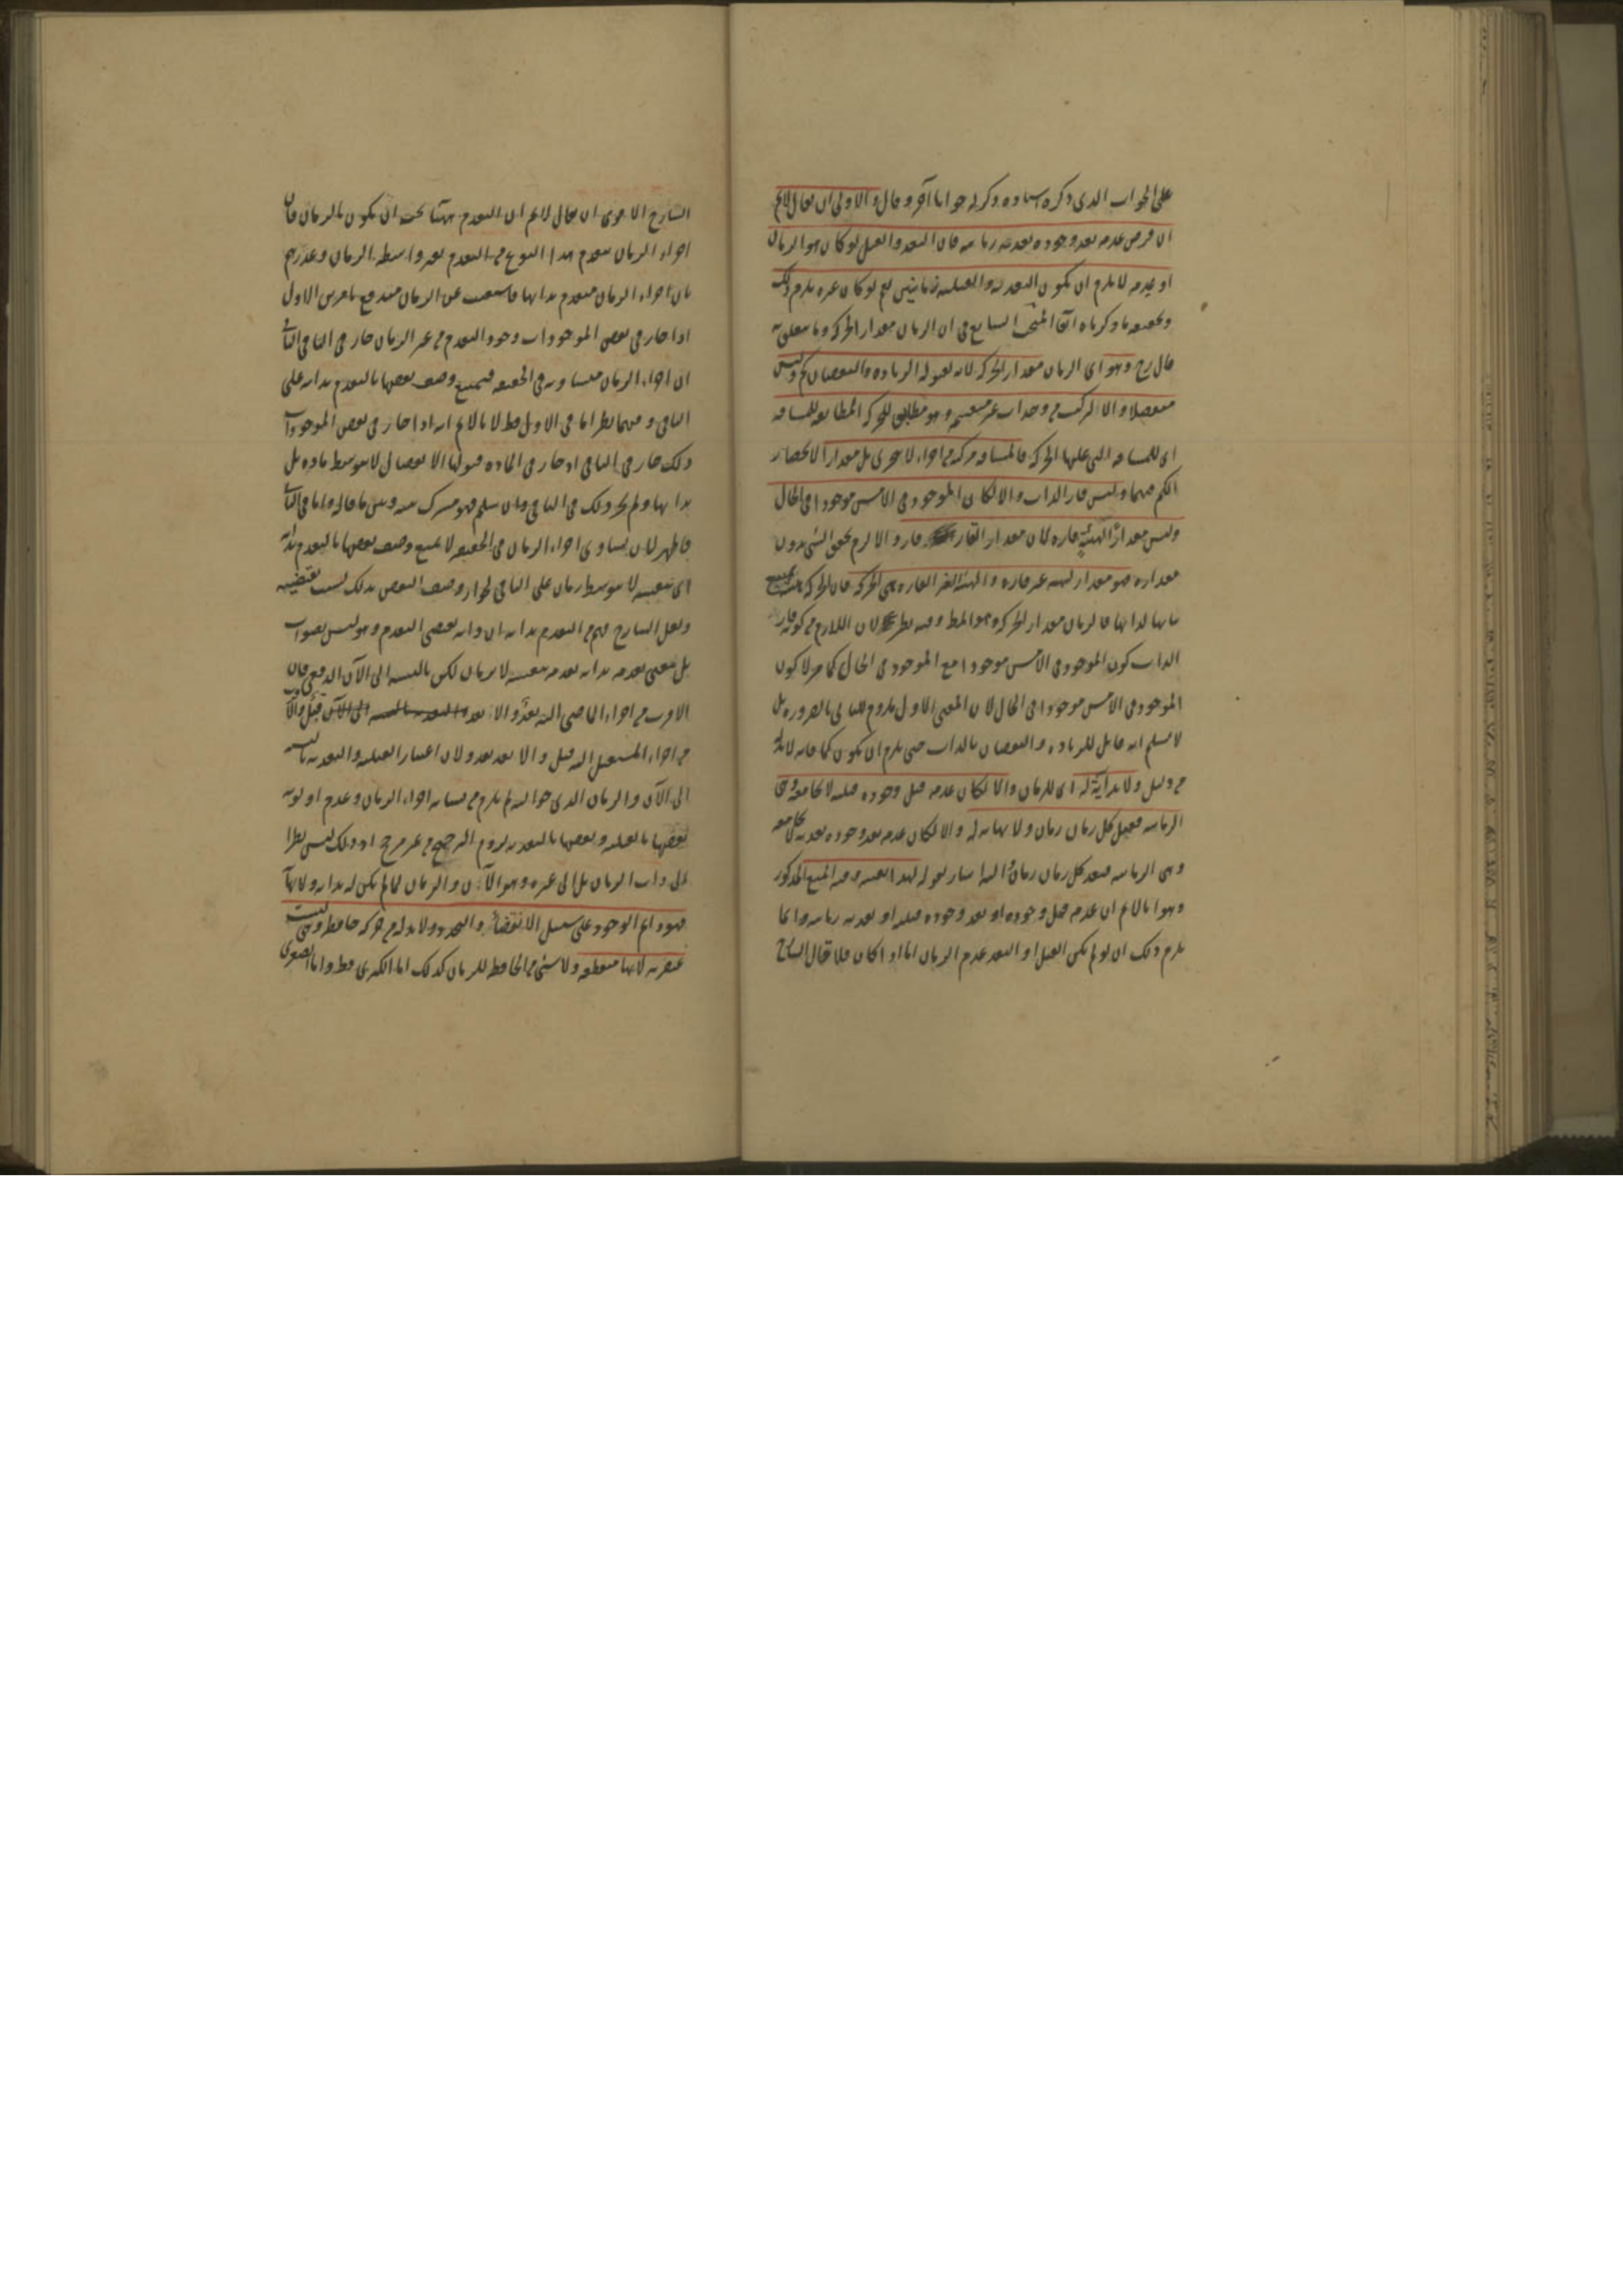 على الجواب الذى ذكره استاده وذكر له جوابا آخر وقال والاولى ان يقال لانم
ان فرض عدمه بعد وجوده بعديه زمانيه فان البعد والقبل لو كان هو الزمان
او عدمه لا يلزم ان يكون البعديه والقبليه زمانيتين نعم لو كان غيره يلزم ذلك
وتحقيقه ما ذكرناه آنفا المبحث السابع فى ان الزمان مقدار الحركه وما يتعلق به
قال رح وهو اى الزمان مقدار الحركه لانه لقبوله الزياده والنقصان كم وليس
منفصلا والا لتركب من وحدات غير منقسمه وهو مطابق للحركه المطابقه للمسافه
اى للمسافه التى عليها الحركه فالمسافه مركبه من اجزاء لا تتجزى بل مقدارا لانحصار
الكم فيهما وليس قار الذات والا لكان الموجود فى الامس موجودا فى الحال
وليس مقدارًا لهيئةٍ قاره لان مقدار القار قار والا لزم تحقق الشئ بدون
مقداره فهو مقدار لهيئه غير قاره والهيئه الغير القاره هى الحركه فان الحركه يمتنع
ثباتها لذاتها فالزمان مقدار الحركه وهو المط وفيه نظر لان اللازم من كونه قار
الذات كون الموجود فى الامس موجودا مع الموجود فى الحال كما مر لا كون
الموجود فى الامس موجودا فى الحال لان المعنى الاول ملزوم للثانى بالضروره بل
لا نسلم انه قابل للزياده والنقصان بالذات حتى يلزم ان يكون كما فانه لا بد له
من دليل ولا بداية له اى للزمان والا لكان عدمه قبل وجوده قبليه لا تجامعه وهى
الزمانيه فقبل كل زمان زمان ولا نهايه له والا لكان عدمه بعد وجوده بعديه لا تجامعه
وهى الزمانيه فبعد كل زمان زمان واليه اشار بقوله لهذا بعينه وفيه المنع المذكور
وهو انا لانم ان عدمه قبل وجوده او بعد وجوده قبليه او بعديه زمانيه وانما
يلزم ذلك ان لو لم يكن القبل او البعد عدم الزمان اما اذا كان فلا قال الشارح
الشارح الاخوى ان يقال لانم ان التقدم ههنا يجب ان يكون بالزمان فان
اجزاء الزمان يتقدم هذا النوع من التقدم بغير واسطه الزمان وعذرهم
بان اجزاء الزمان متقدم بذاتها فاستغنت عن الزمان مندفع بامرين الاول
اذا جاز فى بعض الموجودات وجود التقدم من غير الزمان جاز فى الباقى الثانى
ان اجزاء الزمان متساويه فى الحقيقه فيمتنع وصف بعضها بالتقدم بذاته على
الباقى وفيهما نظر اما فى الاول فظ لانا لانم انه اذا جاز فى بعض الموجودات
ذلك جاز فى الباقى اذ جاز فى الماده قبولها الانفصال لا بتوسط ماده بل
بذاتها ولم يجز ذلك فى الباقى وان سلم فهو مشترك بينه وبين ما قاله واما فى الثانى
فاظهر لان تساوى اجزاء الزمان فى الحقيقه لا يمنع وصف بعضها بالتقدم بذاته
اى بنفسه لا بتوسط زمان على الباقى لجواز وصف البعض بذلك لنسب تقتضيه
ولعل الشارح فهم من التقدم بذاته ان ذاته يقتضى التقدم وهو ليس بصواب
بل معنى تقدمه بذاته تقدمه بنفسه لا بزمان لكن بالنسبه الى الآن الدفعى فان
الاقرب من اجزاء الماضى اليه بعدٌ والابعد قبلٌ والاقرب
من اجزاء المستقبل اليه قبل والابعد بعد ولان اعتبار القبليه والبعديه بالنسبه
الى الآن والزمان الذى حواليه لم يلزم من تشابه اجزاء الزمان وعدم اولويه
بعضها بالقبليه وبعضها بالبعديه لزوم الترجيح من غير مرجح اذ ذلك ليس نظرا
الى ذات الزمان بل الى غيره وهو الآن والزمان لما لم يكن له بدايه ولا نهاية
فهو دائم الوجود على سبيل الانقضاء والتجدد ولا بد له من حركه حافظه وهى ليست
عنصريه لانها منقطعه ولا شئ من الحافظ للزمان كذلك اما الكبرى فظ واما الصغرى